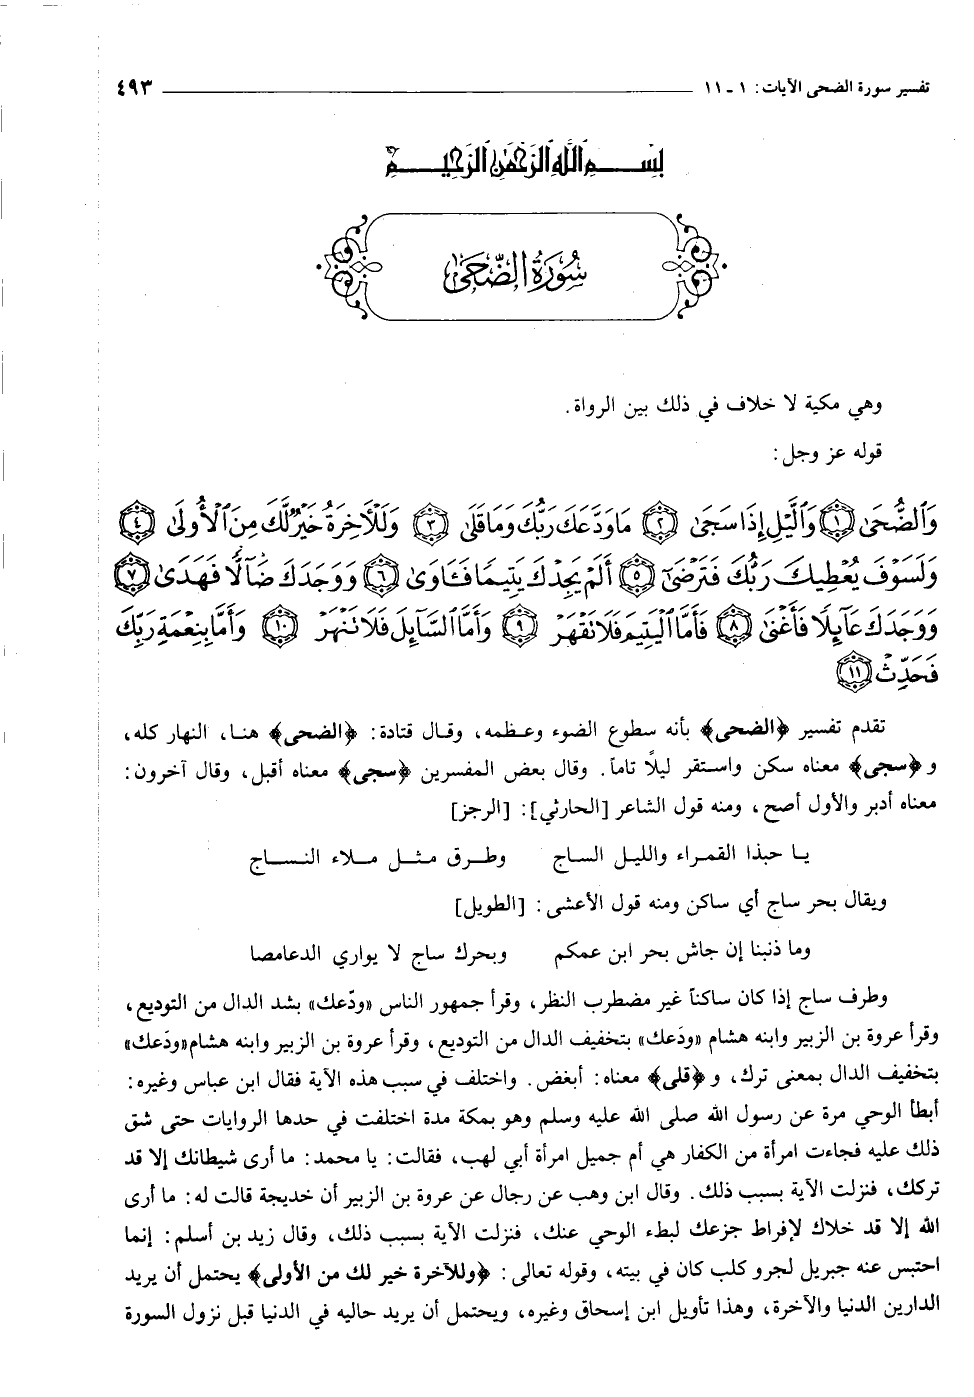 تفسير سورة الضحى الآيات: ١ ـ ١١ ٤٩٣
بِسْمِ اللَّهِ الرَّحْمَٰنِ الرَّحِيمِ
سُورَةُ الضُّحَىٰ
وهي مكية لا خلاف في ذلك بين الرواة.
قوله عز وجل:
وَٱلضُّحَىٰ ١ وَٱلَّيْلِ إِذَا سَجَىٰ ٢ مَا وَدَّعَكَ رَبُّكَ وَمَا قَلَىٰ ٣ وَلَلْآخِرَةُ خَيْرٌ لَّكَ مِنَ ٱلْأُولَىٰ ٤
وَلَسَوْفَ يُعْطِيكَ رَبُّكَ فَتَرْضَىٰٓ ٥ أَلَمْ يَجِدْكَ يَتِيمًا فَـَٔاوَىٰ ٦ وَوَجَدَكَ ضَآلًّا فَهَدَىٰ ٧
وَوَجَدَكَ عَآئِلًا فَأَغْنَىٰ ٨ فَأَمَّا ٱلْيَتِيمَ فَلَا تَقْهَرْ ٩ وَأَمَّا ٱلسَّآئِلَ فَلَا تَنْهَرْ ١٠ وَأَمَّا بِنِعْمَةِ رَبِّكَ
فَحَدِّثْ ١١
تقدم تفسير ﴿الضحى﴾ بأنه سطوع الضوء وعظمه، وقال قتادة: ﴿الضحى﴾ هنا، النهار كله،
و﴿سجى﴾ معناه سكن واستقر ليلاً تاماً. وقال بعض المفسرين ﴿سجى﴾ معناه أقبل، وقال آخرون:
معناه أدبر والأول أصح، ومنه قول الشاعر [الحارثي]: [الرجز]
يا حبذا القمراء والليل الساج وطرق مثل ملاء النساج
ويقال بحر ساج أي ساكن ومنه قول الأعشى: [الطويل]
وما ذنبنا إن جاش بحر ابن عمكم وبحرك ساج لا يواري الدعامصا
وطرف ساج إذا كان ساكناً غير مضطرب النظر، وقرأ جمهور الناس «ودّعك» بشد الدال من التوديع،
وقرأ عروة بن الزبير وابنه هشام «ودَعك» بتخفيف الدال من التوديع، وقرأ عروة بن الزبير وابنه هشام«ودَعك»
بتخفيف الدال بمعنى ترك، و﴿قلى﴾ معناه: أبغض. واختلف في سبب هذه الآية فقال ابن عباس وغيره:
أبطأ الوحي مرة عن رسول الله صلى الله عليه وسلم وهو بمكة مدة اختلفت في حدها الروايات حتى شق
ذلك عليه فجاءت امرأة من الكفار هي أم جميل امرأة أبي لهب، فقالت: يا محمد: ما أرى شيطانك إلا قد
تركك، فنزلت الآية بسبب ذلك. وقال ابن وهب عن رجال عن عروة بن الزبير أن خديجة قالت له: ما أرى
الله إلا قد خلاك لإفراط جزعك لبطء الوحي عنك، فنزلت الآية بسبب ذلك، وقال زيد بن أسلم: إنما
احتبس عنه جبريل لجرو كلب كان في بيته، وقوله تعالى: ﴿وللآخرة خير لك من الأولى﴾ يحتمل أن يريد
الدارين الدنيا والآخرة، وهذا تأويل ابن إسحاق وغيره، ويحتمل أن يريد حاليه في الدنيا قبل نزول السورة